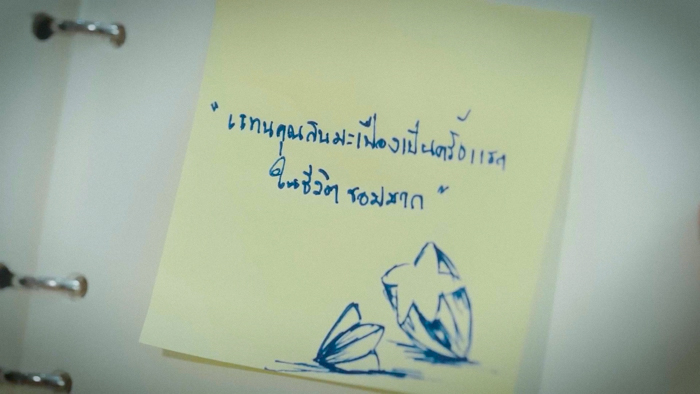 "เรทานคุณสินมะเฟืองเป็นครั้งแรก
ในชีวิต ชอบมาก"